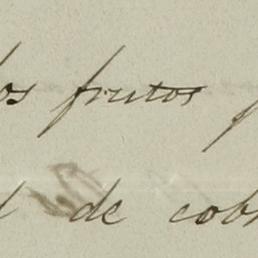 os frutos
de cob